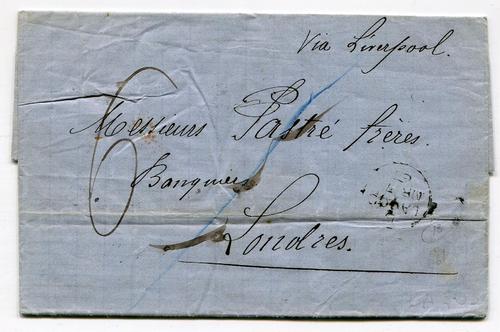 Via Liverpool.
6
Messieurs Pastré frères.
Banquiers
Londres.